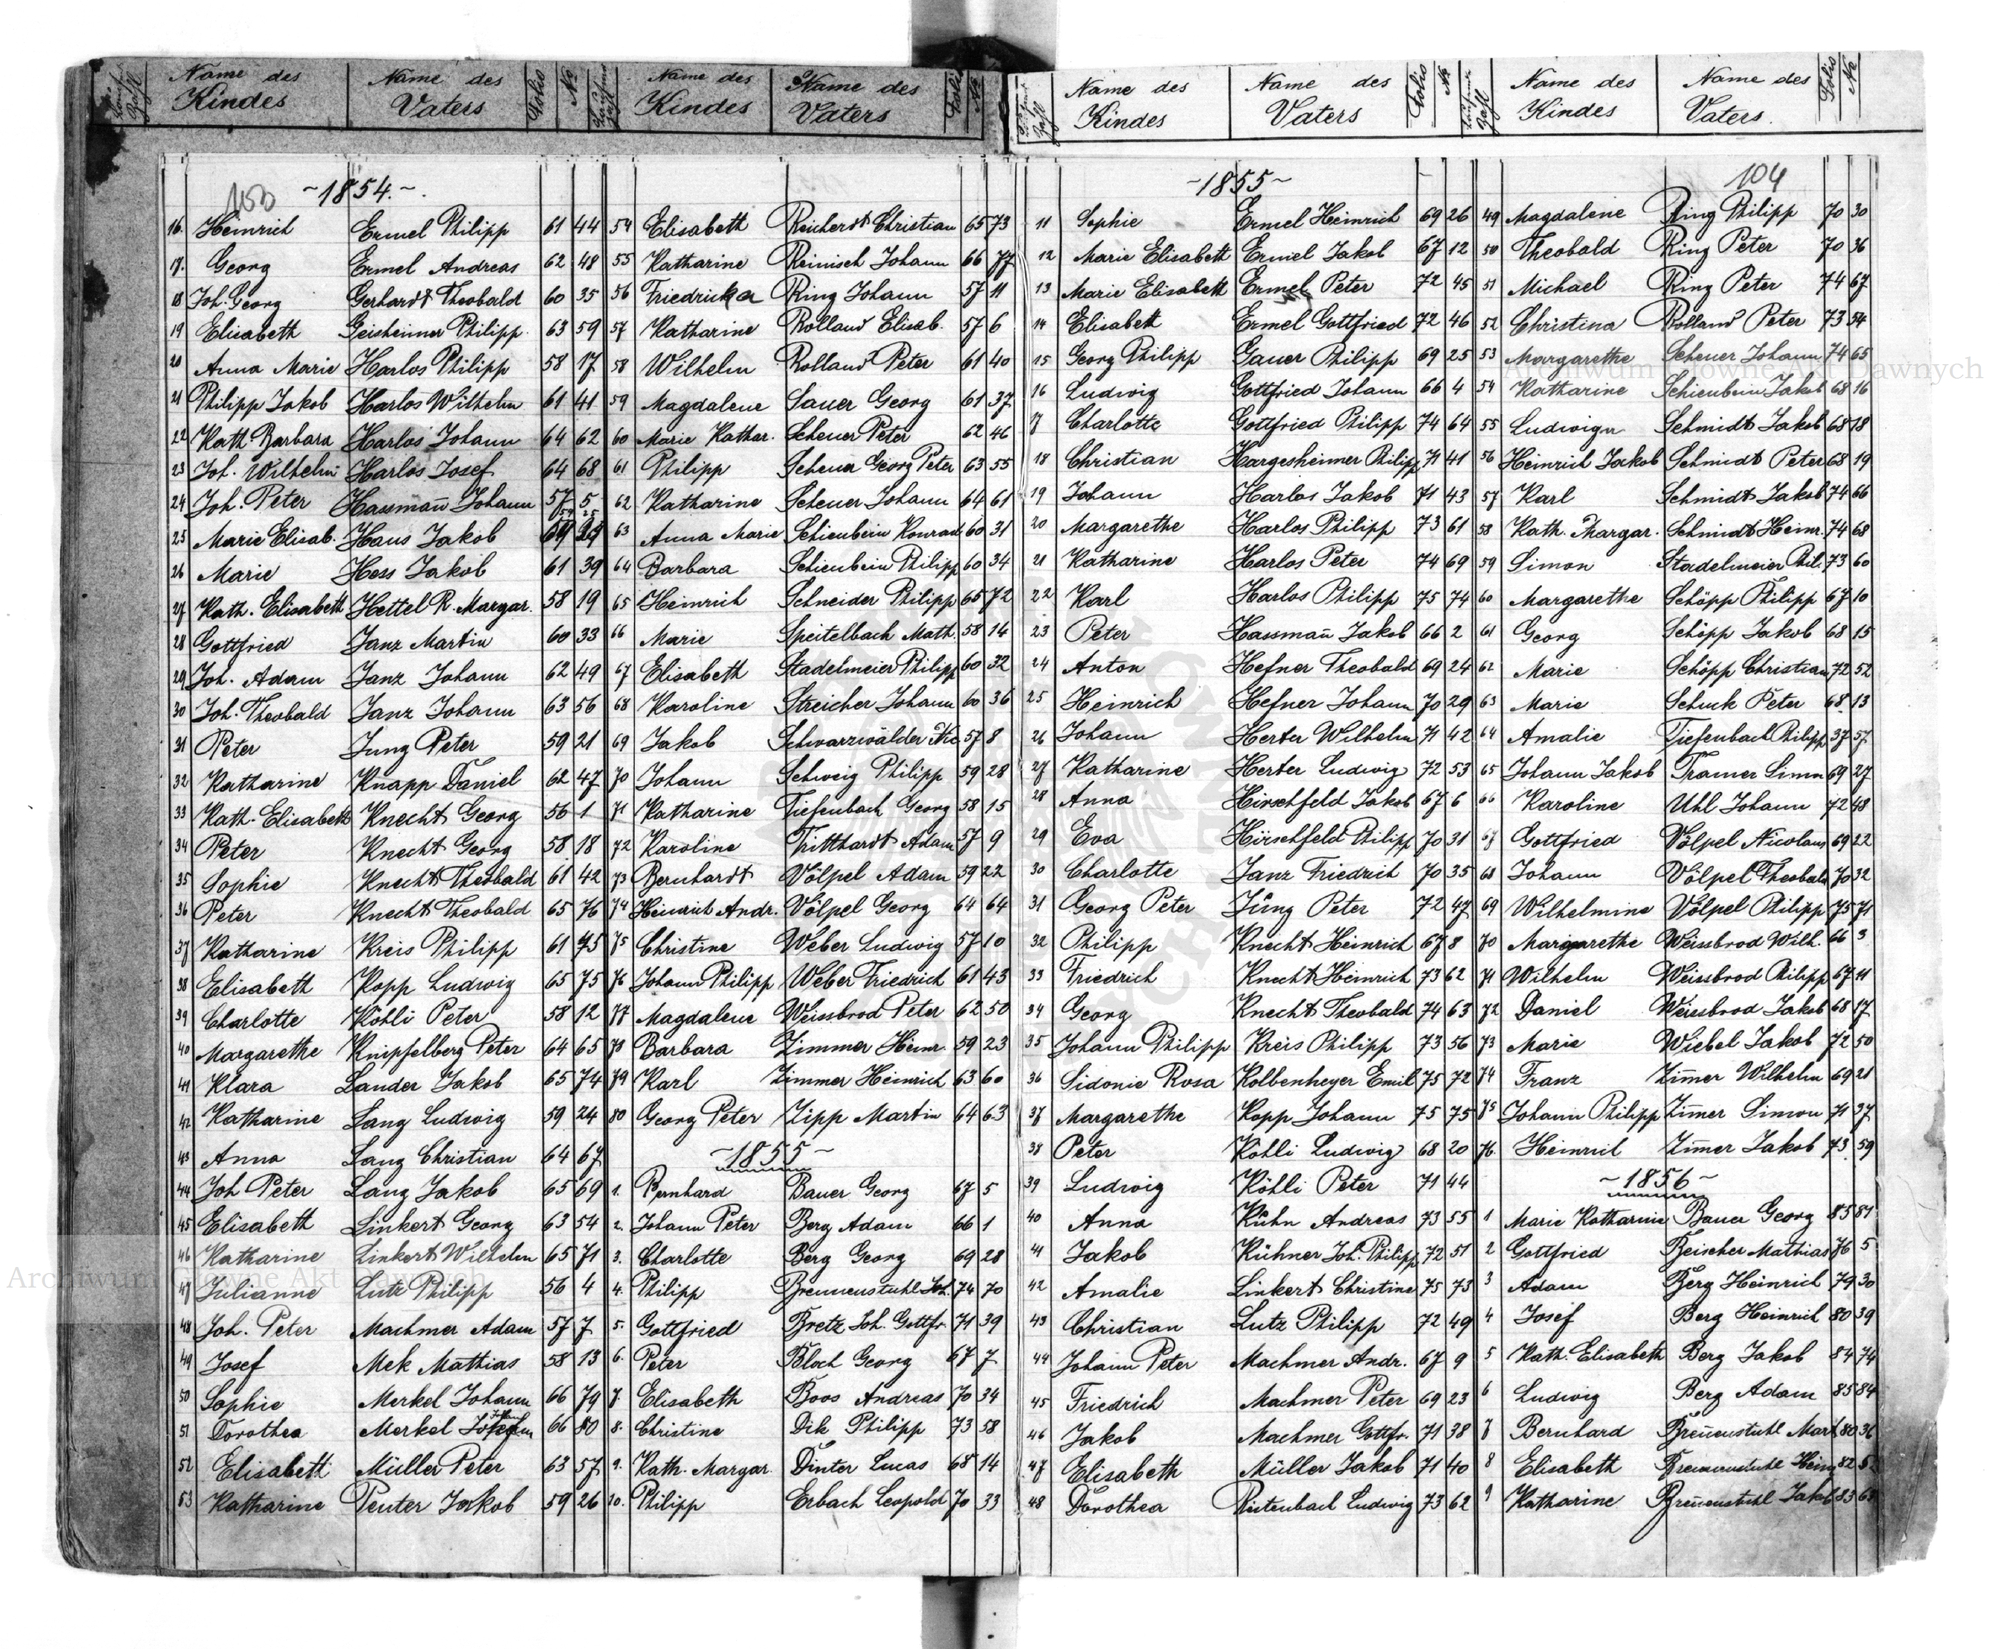 Laufende Zahl Name des Kindes Name des Vaters Folio № Laufende Zahl Name des Kindes Name des Vaters Folio №
~1854~
16. Heinrich Ermel Philipp 61 44
17. Georg Ermel Andreas 62 48
18 Joh. Georg Gerhardt Theobald 60 35
19 Elisabeth Geisheimer Philipp 63 59
20 Anna Marie Harlos Philipp 58 17
21 Philipp Jakob Harlos Wilhelm 61 41
22 Kath. Barbara Harlos Johann 64 62
23 Joh. Wilhelm Harlos Josef 64 68
24 Joh. Peter Hassmañ Johann 57 5
25 Marie Elisab. Haus Jakob 59 25
26 Marie Hess Jakob 61 39
27 Kath. Elisabeth Hettel R. Margar. 58 19
28 Gottfried Janz Martin 60 33
29 Joh. Adam Janz Johann 62 49
30 Joh. Theobald Janz Johann 63 56
31 Peter Jung Peter 59 21
32 Katharine Knapp Daniel 62 47
33 Kath. Elisabeth Knecht Georg 56 1
34 Peter Knecht Georg 58 18
35 Sophie Knecht Theobald 61 42
36 Peter Knecht Theobald 65 76
37 Katharine Kreis Philipp 61 45
38 Elisabeth Kopp Ludwig 65 75
39 Charlotte Köhli Peter 58 12
40 Margarethe Knipfelberg Peter 64 65
41 Klara Lander Jakob 65 74
42 Katharine Lang Ludwig 59 24
43 Anna Lang Christian 64 67
44 Joh Peter Lang Jakob 65 69
45 Elisabeth Linkert Georg 63 54
46 Katharine Linkert Wilhelm 65 71
47 Julianne Lutz Philipp 56 4
48 Joh. Peter Machmer Adam 57 7
49 Josef Mek Mathias 58 13
50 Sophie Merkel Johann 66 79
51 Dorothea Merkel Johann 66 80
52 Elisabeth Müller Peter 63 57
53 Katharine Penter Jakob 59 26
54 Elisabeth Reicherdt Christian 65 73
55 Katharine Reinisch Johann 66 77
56 Friedricka Ring Johann 57 11
57 Katharine Rolland Elisab. 57 6
58 Wilhelm Rolland Peter 61 40
59 Magdalene Sauer Georg 61 37
60 Marie Kathar. Scheuer Peter 62 46
61 Philipp Scheuer Georg Peter 63 55
62 Katharine Scheuer Johann 64 61
63 Anna Marie Schienbein Konrad 60 31
64 Barbara Schienbein Philipp 60 34
65 Heinrich Schneider Philipp 65 72
66 Marie Speitelbach Math. 58 14
67 Elisabeth Stadelmeier Philipp 60 32
68 Karoline Streicher Johann 60 36
69 Jakob Schwarzwälder Nic 57 8
70 Johann Schweig Philipp 59 28
71 Katharine Tiefenbach Georg 58 15
72 Karoline Tritthardt Adam 57 9
73 Bernhardt Völpel Adam 59 22
74 Heinrich Andr. Völpel Georg 64 64
75 Christine Weber Ludwig 57 10
76 Johann Philipp Weber Friedrich 61 43
77 Magdalene Weissbrod Peter 62 50
78 Barbara Zimmer Heinr. 59 23
79 Karl Zimmer Heinrich 63 60
80 Georg Peter Zipp Martin 64 63
~1855~
1. Bernhard Bauer Georg 67 5
2. Johann Peter Berg Adam 66 1
3. Charlotte Berg Georg 69 28
4. Philipp Brennenstuhl Joh. 74 70
5. Gottfried Bretz Joh. Gottfr. 71 39
6. Peter Bloch Georg 67 7
7. Elisabeth Boos Andreas 70 34
8. Christine Dik Philipp 73 58
9. Kath. Margar. Dinter Lucas 68 14
10. Philipp Erbach Leopold 70 33
Laufende Zahl Name des Kindes Name des Vaters Folio № Laufende Zahl Name des Kindes Name des Vaters. Folio №
~1855~
104
11 Sophie Ermel Heinrich 69 26
12 Marie Elisabeth Ermel Jakob 67 12
13 Marie Elisabeth Ermel Peter 72 45
14 Elisabeth Ermel Gottfried 72 46
15 Georg Philipp Gauer Philipp 69 25
16 Ludwig Gottfried Johann 66 4
17 Charlotte Gottfried Philipp 74 64
18 Christian Hargesheimer Philipp 71 41
19 Johann Harlos Jakob 71 43
20 Margarethe Harlos Philipp 73 61
21 Katharine Harlos Peter 74 69
22 Karl Harlos Philipp 75 74
23 Peter Hassmañ Jakob 66 2
24 Anton Hefner Theobald 69 24
25 Heinrich Hefner Johann 70 29
26 Johann Herter Wilhelm 71 42
27 Katharine Herter Ludwig 72 53
28 Anna Hirschfeld Jakob 67 6
29 Eva Hirschfeld Philipp 70 31
30 Charlotte Janz Friedrich 70 35
31 Georg Peter Jung Peter 72 47
32 Philipp Knecht Heinrich 67 8
33 Friedrich Knecht Heinrich 73 62
34 Georg Knecht Theobald 74 63
35 Johann Philipp Kreis Philipp 73 56
36 Sidonie Rosa Kolbenheyer Emil 75 72
37 Margarethe Kopp Johann 75 75
38 Peter Köhli Ludwig 68 20
39 Ludwig Köhli Peter 71 44
40 Anna Kühn Andreas 73 55
41 Jakob Kühner Joh. Philipp 72 51
42 Amalie Linkert Christine 75 73
43 Christian Lutz Philipp 72 49
44 Johann Peter Machmer Andr. 67 9
45 Friedrich Machmer Peter 69 23
46 Jakob Machmer Gottfr. 71 38
47 Elisabeth Müller Jakob 71 40
48 Dorothea Reitenbach Ludwig 73 62
49 Magdalene Ring Philipp 70 30
50 Theobald Ring Peter 70 36
51 Michael Ring Peter 74 67
52 Christina Rolland Peter 73 54
53 Margarethe Scheuer Johann 74 65
54 Katharine Schienbein Jakob 68 16
55 Ludwiga Schmidt Jakob 68 18
56 Heinrich Jakob Schmidt Peter 68 19
57 Karl Schmidt Jakob 74 66
58 Kath. Margar. Schmidt Heinr. 74 68
59 Simon Stadelmeier Phil. 73 60
60 Margarethe Schöpp Philipp 67 10
61 Georg Schöpp Jakob 68 15
62 Marie Schöpp Christian 72 52
63 Marie Schuck Peter 68 13
64 Amalie Tiefenbach Philipp 37 57
65 Johann Jakob Tramer Simon 69 27
66 Karoline Uhl Johann 72 48
67 Gottfried Völpel Nicolaus 69 22
68 Johann Völpel Theobald 70 32
69 Wilhelmine Völpel Philipp 75 71
70 Margarethe Weissbrod Wilh. 66 3
71 Wilhelm Weissbrod Philipp 67 11
72 Daniel Weissbrod Jakob 68 17
73 Marie Wiebel Jakob 72 50
74 Franz Zim̄er Wilhelm 69 21
75 Johann Philipp Zim̄er Simon 71 37
76. Heinrich Zim̄er Jakob 73 59
~1856~
1 Marie Katharine Bauer Georg 85 81
2 Gottfried Beischer Mathias 76 5
3 Adam Berg Heinrich 79 30
4 Josef Berg Heinrich 80 39
5 Kath. Elisabeth Berg Jakob 84 74
6 Ludwig Berg Adam 85 84
7 Bernhard Breñenstuhl Mart 80 36
8 Elisabeth Brennenstuhl Heinr 82
9 Katharine Breñenstuhl Jakob 83
Archiwum Główne Akt Dawnych
Archiwum Główne Akt Dawnych